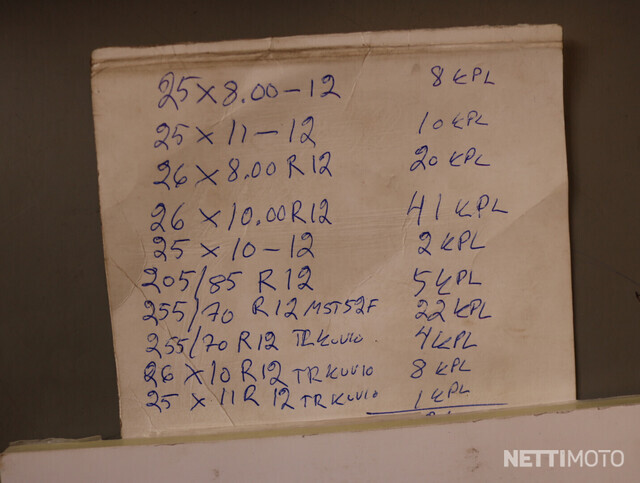 25 x 8.00-12 8 KPL
25 x 11-12 10 KPL
26 x 8.00 R12 20 KPL
26 x 10.00 R12 41 KPL
25 x 10-12 2 KPL
205/85 R12 5 KPL
255/70 R12 MST52F 22 KPL
255/70 R12 TR KUVIO 4 KPL
26 x 10 R12 TR KUVIO 8 KPL
25 x 11 R 12 TR KUVIO 1 KPL
NETTIMOTO